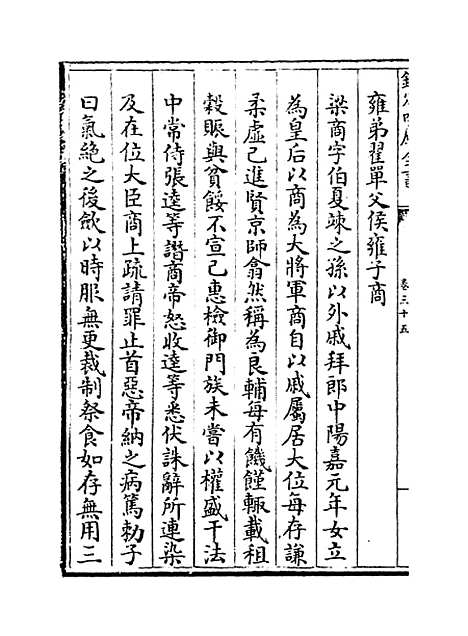 欽定四庫全書
卷三十五
雍弟翟單父侯雍子商
梁商字伯夏竦之孫以外戚拜郎中陽嘉元年女立
為皇后以商為大將軍商自以戚屬居大位每存謙
柔虚己進賢京師翕然稱為良輔每有饑饉輒載租
穀賑與貧餒不宣己惠檢御門族未嘗以權盛干法
中常侍張逵等譖商帝怒收逵等悉伏誅辭所連染
及在位大臣商上疏請罪止首惡帝納之病篤勅子
曰氣絶之後斂以時服無更裁制祭食如存無用三